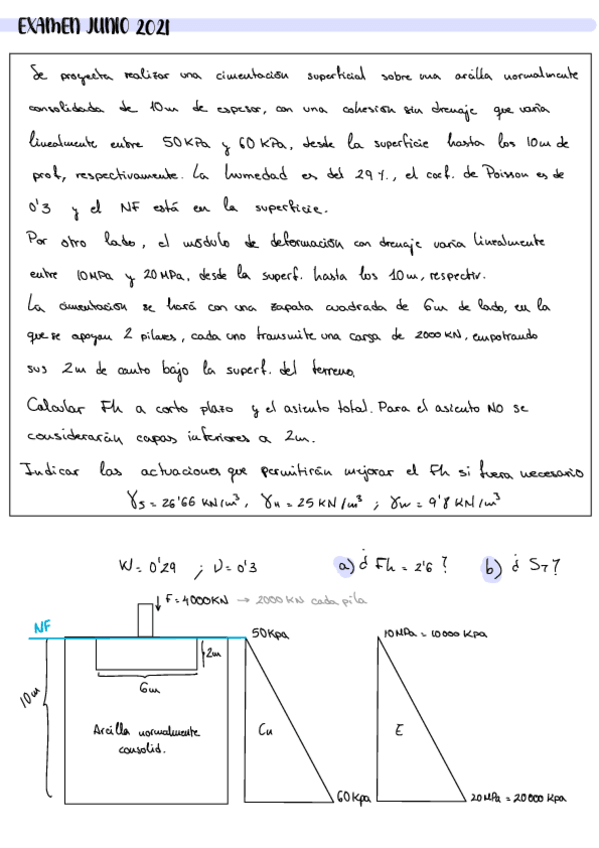 EXAMEN JUNIO 2021
Se proyecta realizar una cimentación superficial sobre una arcilla normalmente
consolidada de 10m de espesor, con una cohesión sin drenaje que varía
linealmente entre 50KPa y 60 KPa, desde la superficie hasta los 10m de
prof, respectivamente. La humedad es del 29 %, el coef. de Poisson es de
0'3 y el NF está en la superficie.
Por otro lado, el módulo de deformación con drenaje varía linealmente
entre 10MPa y 20MPa, desde la superf. hasta los 10m, respectiv.
La cimentación se hará con una zapata cuadrada de 6m de lado, en la
que se apoyan 2 pilares, cada uno transmite una carga de 2000 KN, empotrando
sus 2m de canto bajo la superf. del terreno.
Calcular Fh a corto plazo y el asiento total. Para el asiento NO se
considerarán capas inferiores a 2m.
Indicar las actuaciones que permitirán mejorar el Fh si fuera necesario
γs = 26'66 KN/m³, γH = 25 KN/m³ ; γw = 9'8 KN/m³
W = 0'29 ; ν = 0'3 a) ¿ Fh = 2'6 ? b) ¿ ST?
F = 4000KN → 2000 KN cada pila
NF 50Kpa 10MPa = 10000 Kpa
2m
6m
10m
Arcilla normalmente
consolid.
Cu E
60Kpa 20MPa = 20000 Kpa